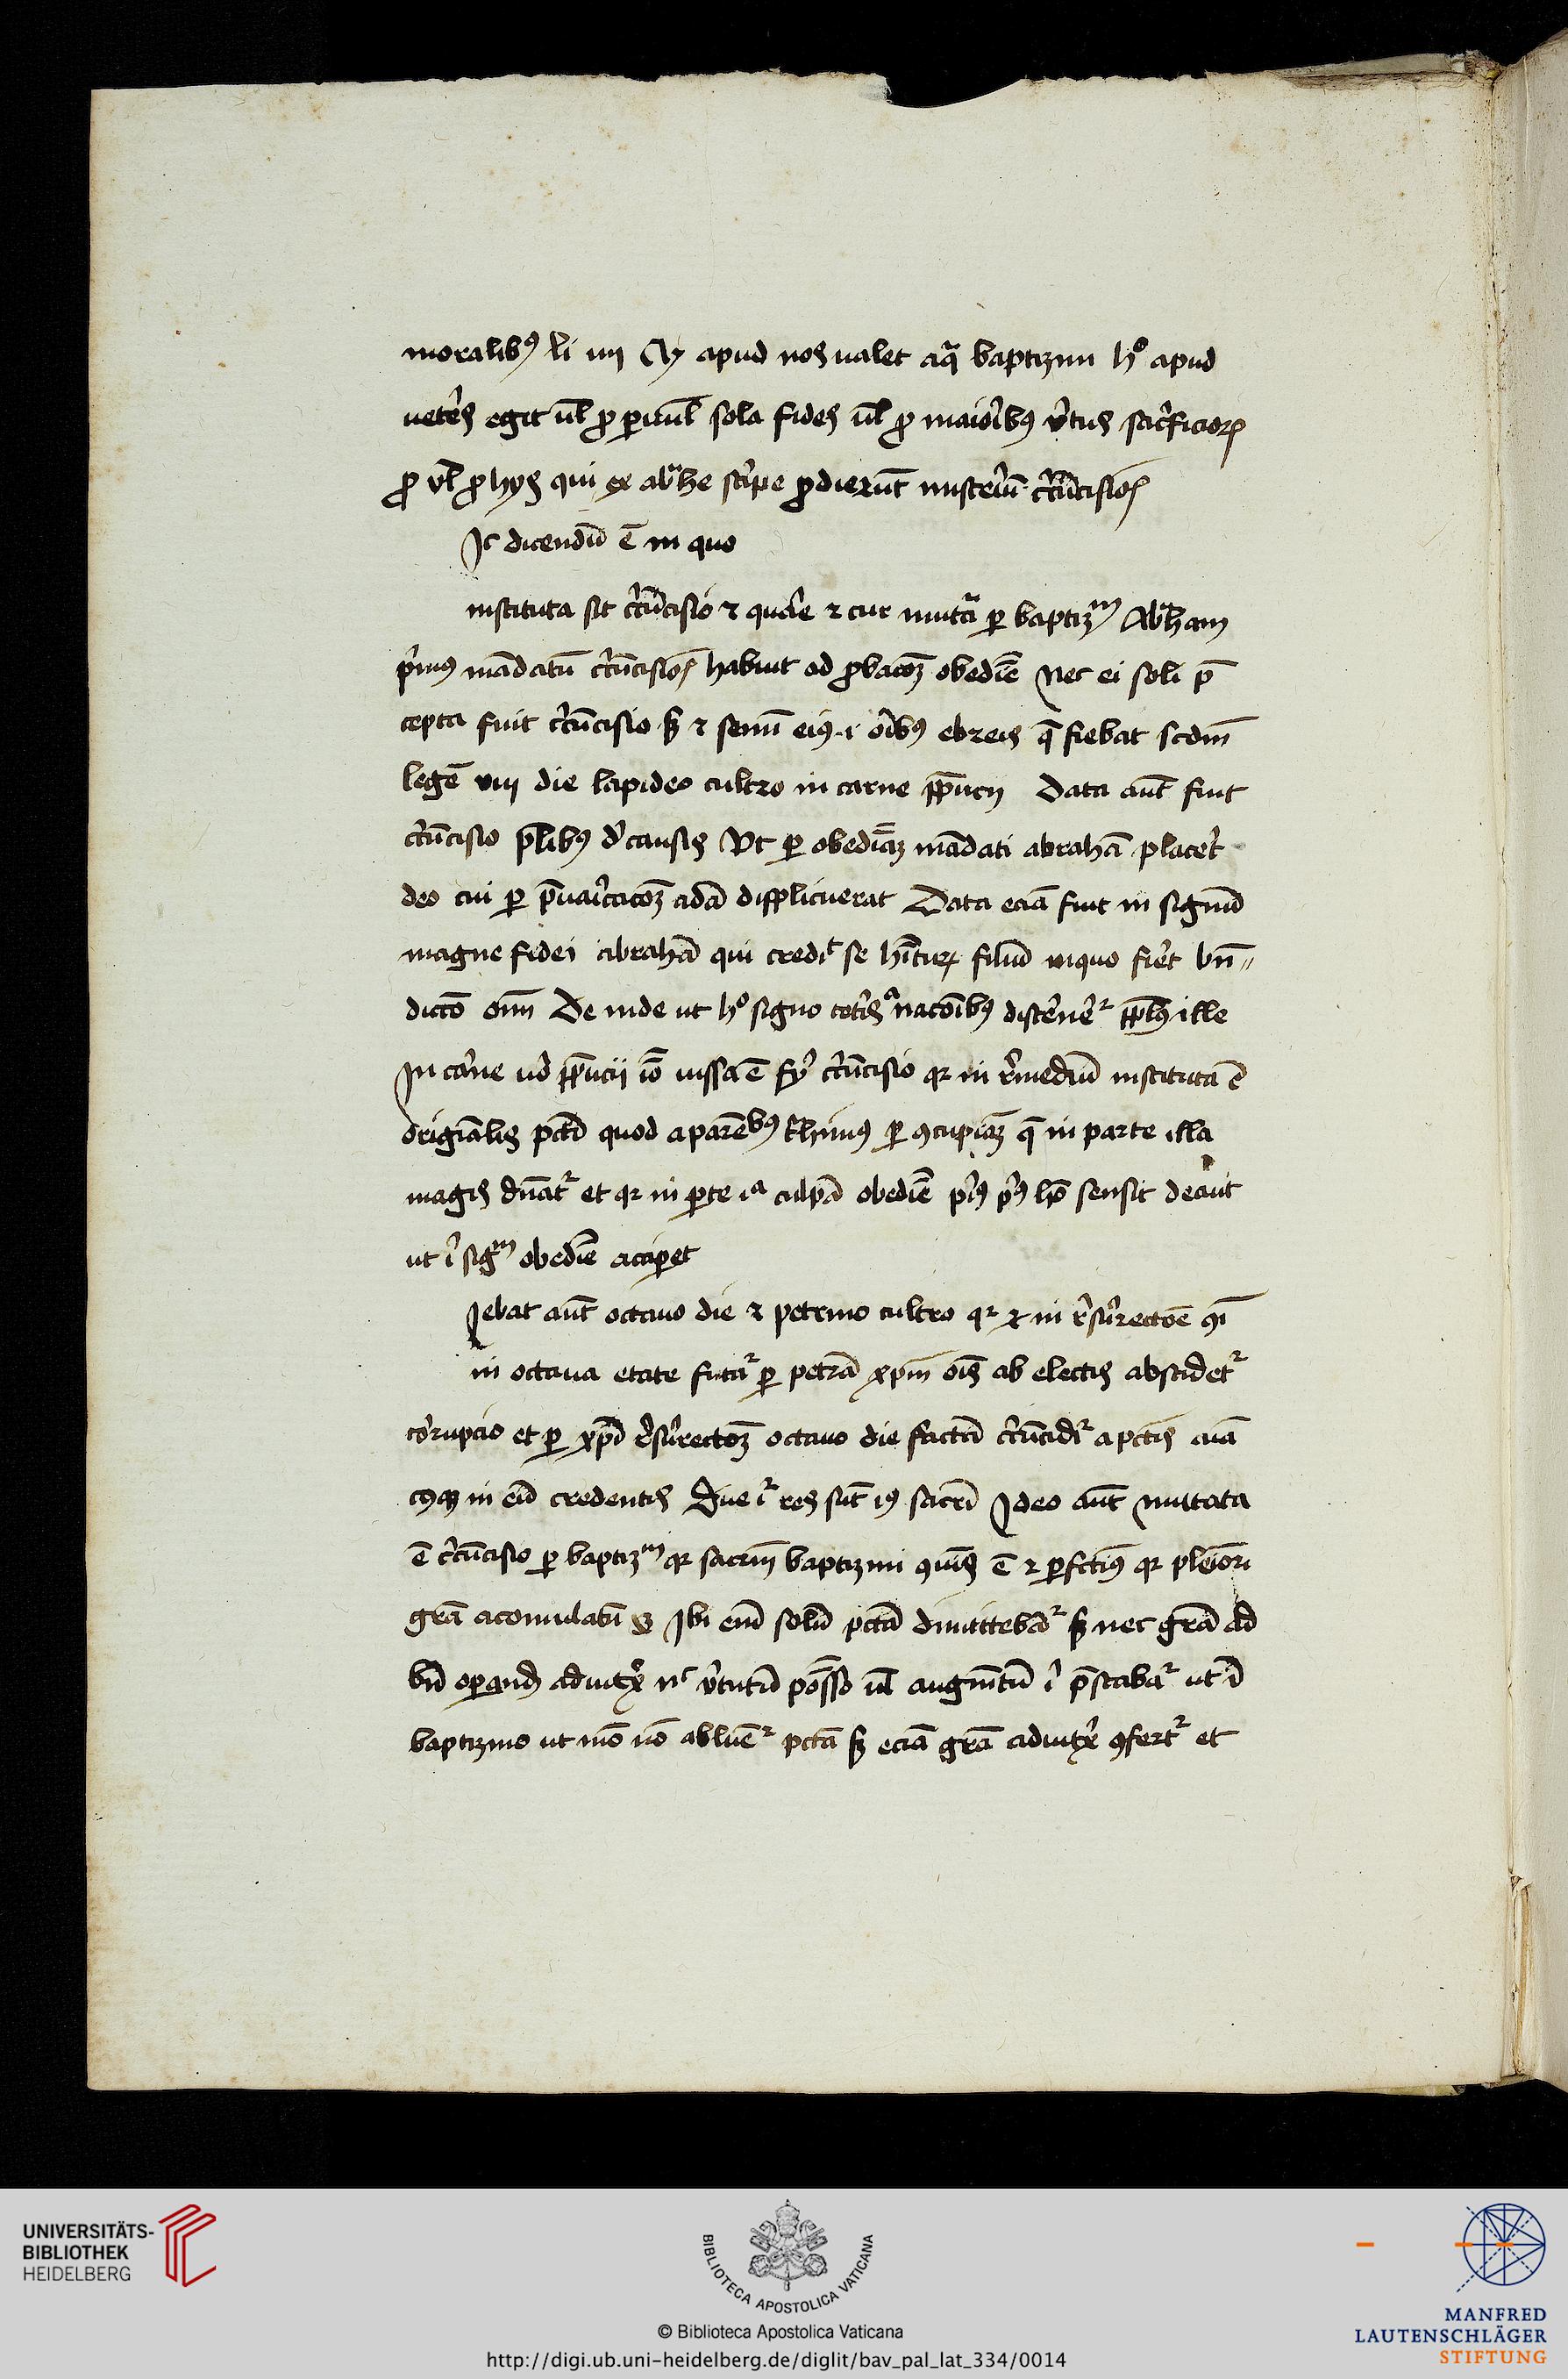 moralibꝰ li iiij Qͥ apud nos ualet aqͣ baptizmi hͦ apud
uetēs egit ul̄ ꝓ ꝑuul̄ sola fides ul̄ ꝓ maioribꝰ v̓tus sac̓ficioꝝ
ꝓ vl̄ ꝓ hys qui ex abͬhe stirpe ꝓdierūt misteriū cͥcūcisioꝭ
Ic dicendū ē in quo
instituta sit cͥcūcisio ⁊ quare ⁊ cur mutata ꝑ baptizᵐ Abͬham
pͥmꝰ mādatū cͥcūcisioꝭ habuit ad ꝓbacōꝫ obediē Nec ei soli p̄
cepta fuit cͥcūcisio sꝫ ⁊ semī eiꝰ .i. oībꝰ ebreis q̄ fiebat scdm̄
legē viij die lapideo cultro in carne p̄pucij Data aūt fuit
cͥcūcisio pl̄ibꝰ d̓ causis Vt ꝑ obediāꝫ mādati abrahā placet̓
deo cui ꝑ p̄uaricacōꝫ adā displicuerat Data eciā fuit in signū
magne fidei abrahā qui credͥt se hīturꝭ filiū in quo fiet̓ bn̄〃
dictō om̄ De inde ut hͦ signo cet̓is ͣ nacōibꝰ discerneͬ ppl̄ꝰ ille
In carne v̓o p̄pucii iō iussa ē fi̓ cͥcūcisio qꝛ in r̓mediū instituta ē
originalis pctī quod a parētibꝰ tͣhimꝰ ꝑ ꝯcupiāꝫ q̄ in parte illa
magis dn̄atͬ et qꝛ in ꝑte iᵃ culpā obediē pͥꝰ pͥꝰ hō sensit decuit
ut ī sigᵐ obediē acciꝑet
Iebat aūt octauo die ⁊ petrino cultro qꝛ ⁊ in r̓surectōe ꝯī
in octaua etate futͣ ꝑ petrā xp̄m oīs ab electis abscidetͬ
corupcio et ꝑ xp̄i r̓surectōꝫ octauo die factā cͥcūcidͥͬ a pctīs aīa
cuiꝰqꝫ in eū credentis Due gͥ res sūt iꝰ sacrī Ideo aūt mutata
ē cͥcūcisio ꝑ baptizᵐ qꝛ sacrm̄ baptizmi ꝯmūis ē ⁊ ꝑfctiꝰ qꝛ pleniori
grā acomulatū Ibi eni solū pctā dimittebāͬ sꝫ nec grā ad
bn̄ oꝑand̄ adiutxͥ nͨ v̓tutū possō ul̄ augmētū ī p̄stabaͬ ut ī
baptizmo ut mō nō abluēͬ pctā sꝫ eciā grā adiutxͥ ꝯfertͬ et
UNIVERSITÄTS-
BIBLIOTHEK
HEIDELBERG
BIBLIOTECA APOSTOLICA VATICANA
© Biblioteca Apostolica Vaticana
http://digi.ub.uni-heidelberg.de/diglit/bav_pal_lat_334/0014
MANFRED
LAUTENSCHLÄGER
STIFTUNG